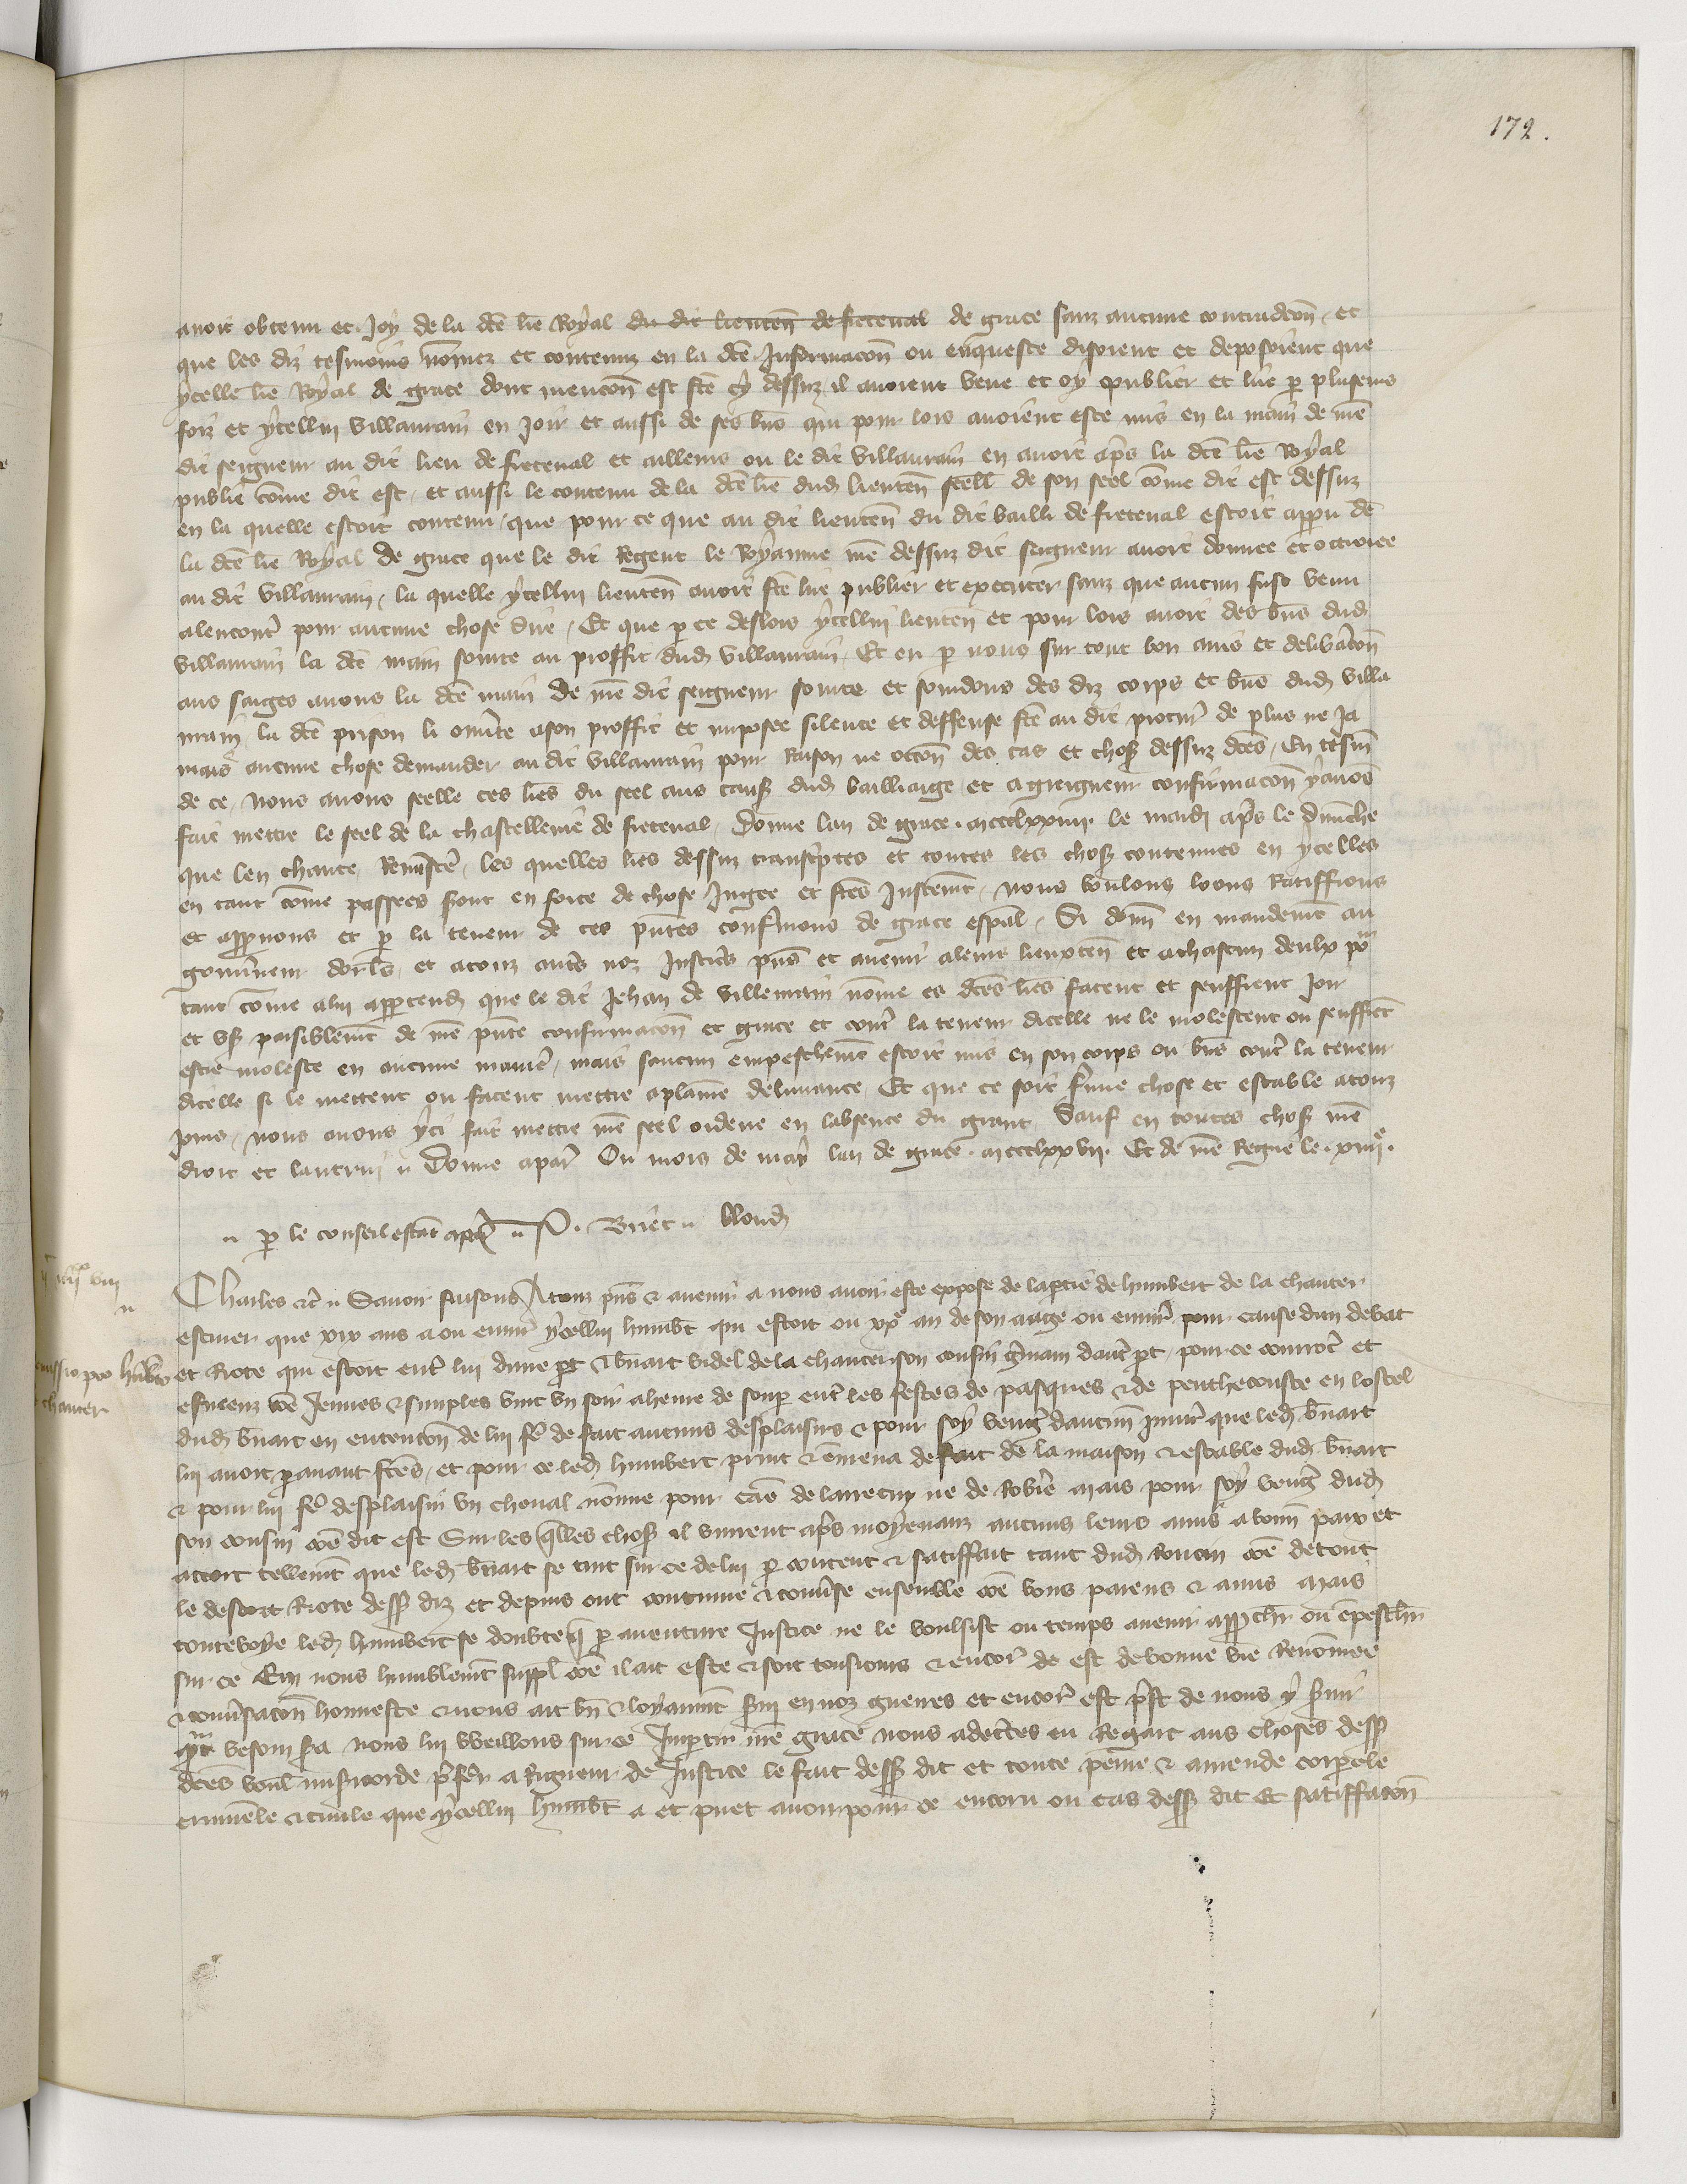 172.
avoit obtenu et Joy de la dce lre Royal du dit lieuten de fretenal de grace sanz aucune contradicon, et
que les diz tesmoins nomez et contenuz en la dce Informacon ou enqueste disoient et deposoient que
ycelle lre Royal de grace dont mencon est fce cy dessuz, il avoient veue et oy publier et lire p pluseurs
foiz et ycellui villamain en Joir et aussi de ses bns qui pour lors avoient este mis en la main de nre
dit seigneur au dit lieu de fretenal et ailleurs ou le dit villamain en avoit aps la dce lre Royal
publie come dit est, et aussi le contenu de la dce lre dud lieuten seell de son seel come dit est dessuz
en la quelle estoit contenu, que pour ce que au dit lieuten du dit bailli de fretenal estoit apparu de
la dce lre Royal de grace que le dit Regent le Royaume nre dessuz dit seigneur avoit donnee et octroiee
au dit villamain, la quelle ycellui lieuten avoit fce lire publier et executer sanz que aucun fust venu
alencontr pour aucune chose dire, Et que p ce deslors ycellui lieuten et pour lors avoit des bns dud
villamain la dce main soince au proffit dud villamain, Et eu p nous sur tout bon avis et delibacon
aus saiges avons la dce main de nre dit seigneur soince et soindons des diz corps et bns dud villa
main, la dce prison li ouvte a son proffit et imposee silence et deffense fce au dit procur de plus ne Ja
mais aucune chose demander au dit villamain pour Raison ne occon des cas et chos dessuz dces, En tesm
de ce, nous avons seelle ces lres du seel aus caus dud bailliaige, et a greigneur confirmacon y avons
fait mettre le seel de la chastellenie de fretenal, Donne lan de grace. mccclxxiiij. le mardi aps le dimenche
que len chante Reminiscer, les quelles lres dessuz transcptes et toutes les chos contenues en ycelles
en tant come passees sont en force de chose Jugee et fces Justemt, nous voulons loons Ratiffions
et appvons et p la teneur de ces pntes confmons de grace espal, Si donn en mandemt au
gouvneur dorls, et a touz autrs noz Justicrs pns et avenir a leurs lieuxten et a chascun deulx por
tant come a lui appartend que le dit Jehan de Villemain nome es dces lres facent et seuffrent Joir
et us paisiblemt de nre pnte confirmacon et grace et contr la teneur dicelle ne le molestent ou seuffret
estre moleste en aucune manir, mais saucun empeschemt estoit mis en son corps ou bns contr la teneur
dicelle si le mettent ou facent mettre a plaine delivrance, Et que ce soit ferme chose et estable a touz
jours, nous avons yci fait mettre nre seel ordene en labsence du grant, Sauf en toutes chos nre
droit et lautrui. Donne a par Ou mois de may lan de grace. mccclxxvij. Et de nre Regne le. xiiije.
p le conseil estat a par P. Briet. blond
ijc iiijxx viij
Charles etc Savoir faisons A touz pns & avenir a nous avoir este expose de la ptie de humbert de la chancer
escuier que xix ans a ou envir ycellui humbt qui estoit ou xxe an de son aage ou envir pour cause dun debat
et Riote qui estoit entr lui dune pt & bnart videl de la chancer son cousin gmain dautr pt, pour ce courrocr et
remissio pro humbto
chancer
esmeuz coe Jeunes & simples vint un soir a heure de soup entr les festes de pasques & de penthecouste en lostel
dud bnart en entencon de lui fe de fait aucuns desplaisirs & pour soy vengr daucun Jniur que led bnart
lui avoit p avant fces, et pour ce led humbert print & emena de fait de la maison & estable dud bnart
& pour lui fe desplaisir un cheval nonme pour cae de larrecin ne de Roberie mais pour soy vengr dud
son cousin coe dit est Sur les qlles chos il vinrent aps moyenanz aucuns leurs amis a bonn paix et
accort tellemt que led bnart se tint sur ce de lui p content & satiffait tant dud Roncin coe de tout
le descort Riote dess diz et depuis ont continue & converse ensemble coe bons parens & amis mais
toutevoye led humbert se doubte q p aventure Justice ne le voulsist ou temps avenir appchr ou empeschr
sur ce Em nous humblemt suppl coe il ait este & soit tousiours & encor de est de bonne vie Renomee
& conversacon honneste & nous ait bn & loyaumt svi en noz guerres et encor est pst de nous y svir
qnt besoin sa nous lui vueillons sur ce Impartir nre grace nous adectes eu Regart aus choses dess
dces voul misericorde pfer a Rigueur de Justice le fait dess dit et toute peine & amende corporele
criminele & civile que ycellui humbt a et puet avoir pour ce encouru ou cas dess dit Et satiffacon